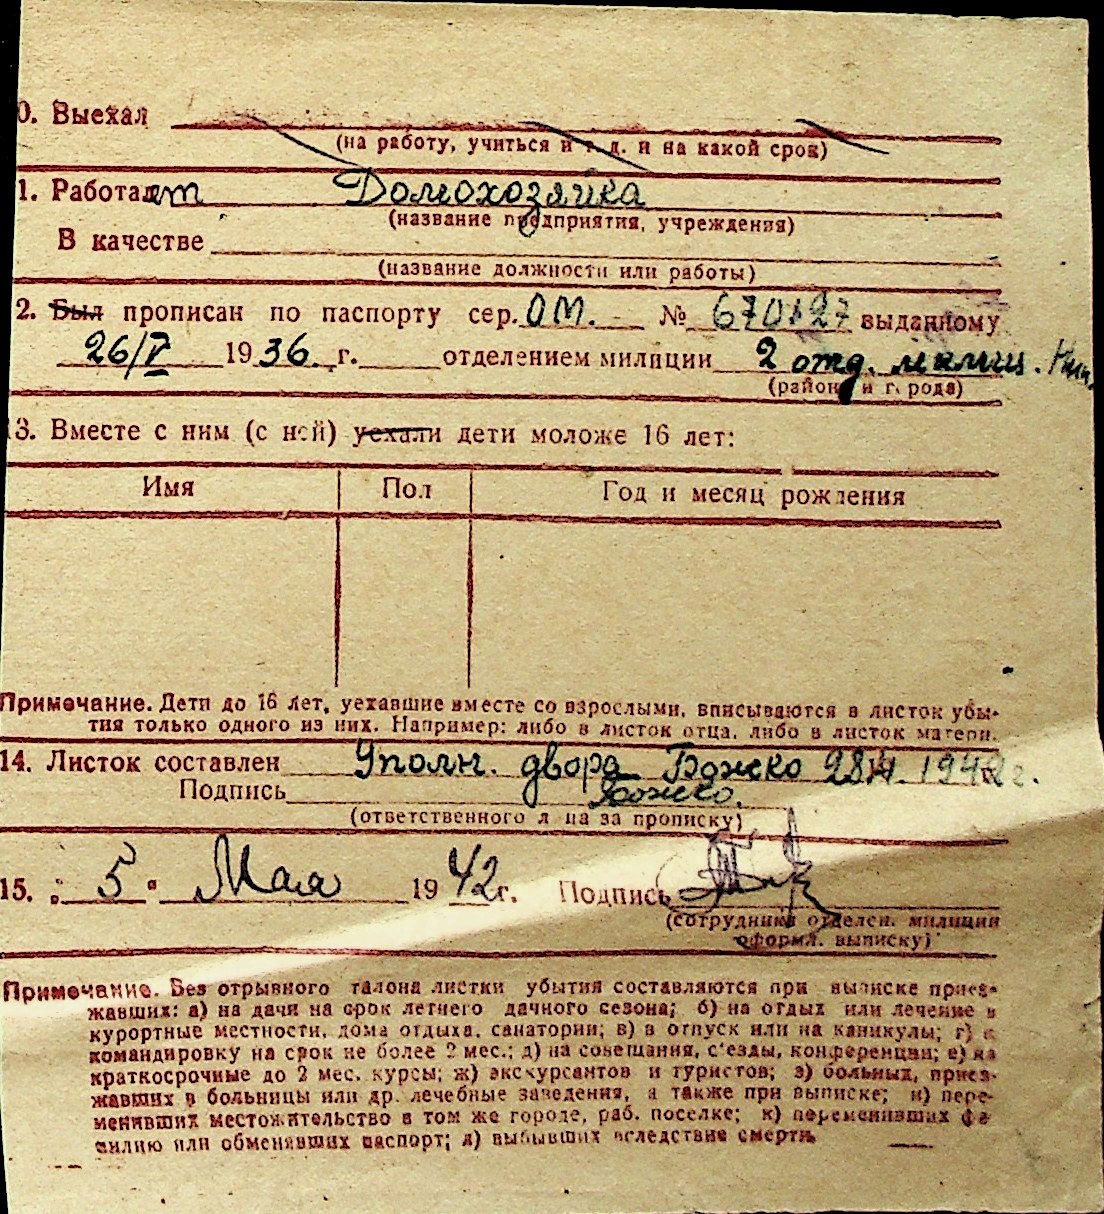 0. Выехал
(на работу, учиться и т. д. и на какой срок)
1. Работает Домохозяйка
(название предприятия, учреждения)
В качестве
(название должности или работы)
2. Был прописан по паспорту сер. ОМ. № 670127 выданному
26/V 1936 г. отделением милиции 2 отд. милиц.
(район и города)
13. Вместе с ним (с ней) уехали дети моложе 16 лет:
Имя Пол Год и месяц рождения
Примечание. Дети до 16 лет, уехавшие вместе со взрослыми, вписываются в листок убы-
тия только одного из них. Например: либо в листок отца, либо в листок матери.
14. Листок составлен Уполн. двора Божко 28/4 1942 г.
Подпись Божко.
(ответственного лица за прописку)
15. „5" Мая 1942 г. Подпись
(сотрудника отделен. милиции
оформл. выписку)
Примечание. Без отрывного талона листки убытия составляются при выписке приез-
жавших: а) на дачи на срок летнего дачного сезона; б) на отдых или лечение в
курортные местности, дома отдыха, санатории; в) в отпуск или на каникулы; г) в
командировку на срок не более 2 мес.; д) на совещания, с'езды, конференции; е) на
краткосрочные до 2 мес. курсы; ж) экскурсантов и туристов; з) больных, приез-
жавших в больницы или др. лечебные заведения, а также при выписке; и) пере-
менивших местожительство в том же городе, раб. поселке; к) переменивших фа-
милию или обменявших паспорт; л) выбывших вследствие смерти